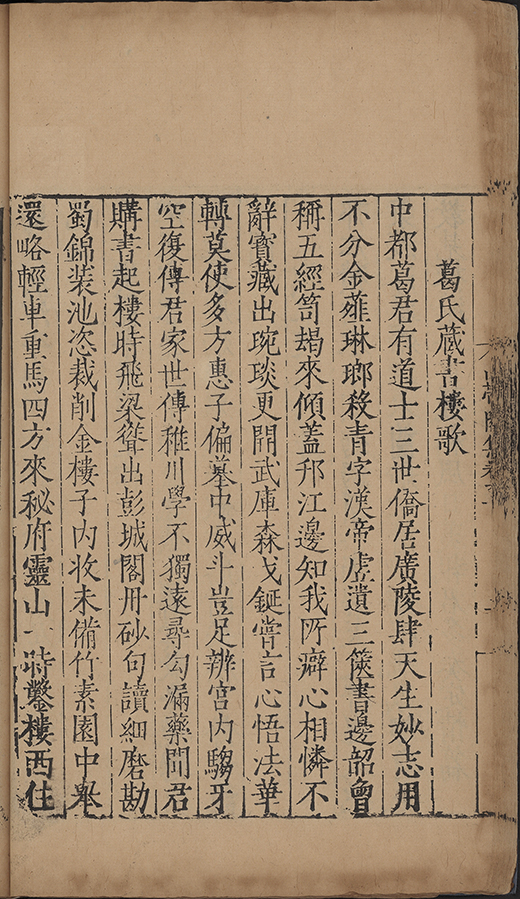 葛氏藏書樓歌
中都葛君有道士三世僑居廣陵肆天生妙志用
不分金薤琳瑯殺青字漢帝虛遺三篋書邊韶曾
稱五經笥朅來傾蓋邗江邊知我所癖心相憐不
辭寶藏出琬琰更開武庫森戈鋋嘗言心悟法華
轉莫使多方惠子偏墓中威斗豈足辨宮内騶牙
空復傳君家世傳稚川學不獨遠尋勾漏藥聞君
購書起樓時飛梁聳出彭城閣丹砂句讀細磨勘
蜀錦装池恣裁削金樓子内收未備竹素園中舉
還略輕車重馬四方來秘府靈山一時鑿樓西住